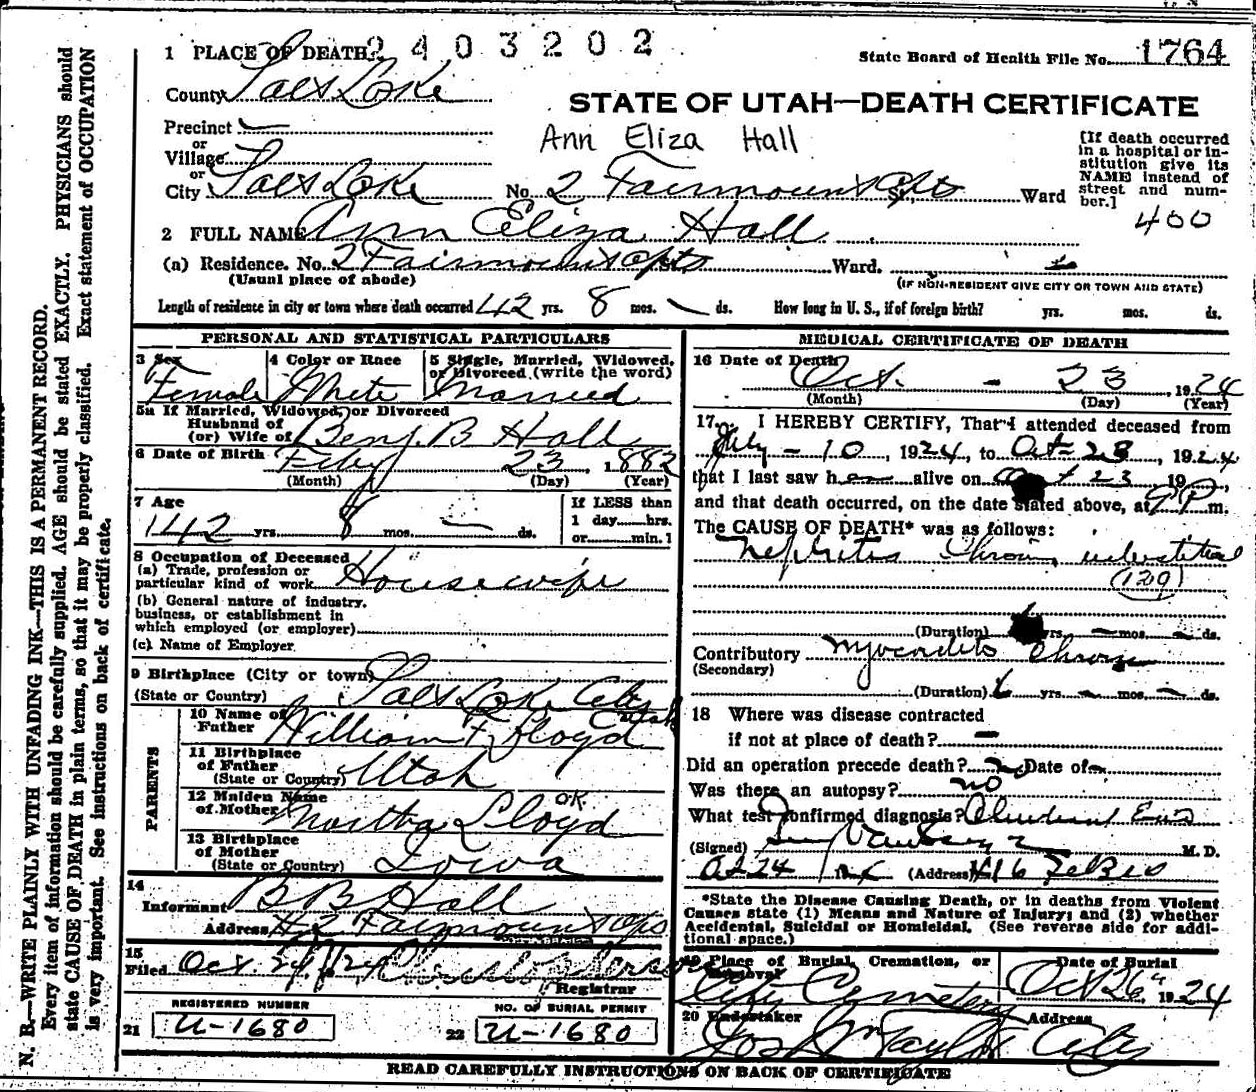 2403202
1 PLACE OF DEATH
State Board of Health File No. 1764
County Salt Lake
STATE OF UTAH—DEATH CERTIFICATE
Precinct —
Ann Eliza Hall
or
Village
or
City Salt Lake No. 2 Fairmount Apts St., Ward
[If death occurred
in a hospital or in-
stitution give its
NAME instead of
street and num-
ber.]
400
2 FULL NAME Ann Eliza Hall
(a) Residence. No. 2 Fairmount Apts St. Ward.
(Usual place of abode)
(IF NON-RESIDENT GIVE CITY OR TOWN AND STATE)
Length of residence in city or town where death occurred 42 yrs. 8 mos. — ds. How long in U. S., if of foreign birth? yrs. mos. ds.
PERSONAL AND STATISTICAL PARTICULARS
3 Sex
Female
4 Color or Race
White
5 Single, Married, Widowed,
or Divorced (write the word)
Married
5a If Married, Widowed, or Divorced
Husband of
(or) Wife of Benj. B Hall
6 Date of Birth Feby 23, 1882
(Month) (Day) (Year)
7 Age
42 yrs. 8 mos. — ds.
If LESS than
1 day......hrs.
or......min.1
8 Occupation of Deceased
(a) Trade, profession or
particular kind of work Housewife
(b) General nature of industry,
business, or establishment in
which employed (or employer)
(c) Name of Employer
9 Birthplace (City or town)
(State or Country) Salt Lake City
Utah
PARENTS
10 Name of
Father William F. Lloyd
11 Birthplace
of Father
(State or Country) Utah
12 Maiden Name
of Mother Martha Lloyd
OK
13 Birthplace
of Mother
(State or Country) Iowa
14
Informant B B Hall
Address #2 Fairmount Apts
15
Filed Oct. 24, 1924
Registrar
REGISTERED NUMBER
21 U-1680
NO. OF BURIAL PERMIT
22 U-1680
MEDICAL CERTIFICATE OF DEATH
16 Date of Death
Oct. - 23, 1924
(Month) (Day) (Year)
17. I HEREBY CERTIFY, That I attended deceased from
July - 10, 1924, to Oct - 23, 1924
that I last saw her alive on Oct 23 19 ,
and that death occurred, on the date stated above, at 9 P m.
The CAUSE OF DEATH* was as follows:
Nephritis Chronic interstitial
(129)
(Duration) yrs. — mos. — ds.
Contributory Myocarditis Chronic
(Secondary)
(Duration) 6 yrs. — mos. — ds.
18 Where was disease contracted
if not at place of death? —
Did an operation precede death? Date of —
Was there an autopsy? no
What test confirmed diagnosis?
(Signed) M. D.
Oct 24 (Address)
*State the Disease Causing Death, or in deaths from Violent
Causes state (1) Means and Nature of Injury; and (2) whether
Accidental, Suicidal or Homicidal. (See reverse side for addi-
tional space.)
19 Place of Burial, Cremation, or
Removal
City Cemetery
Date of Burial
Oct 26" 1924
20 Undertaker
Jos Wm Taylor
Address
City
READ CAREFULLY INSTRUCTIONS ON BACK OF CERTIFICATE
N. B.—WRITE PLAINLY WITH UNFADING INK—THIS IS A PERMANENT RECORD.
Every item of information should be carefully supplied. AGE should be stated EXACTLY. PHYSICIANS should
state CAUSE OF DEATH in plain terms, so that it may be properly classified. Exact statement of OCCUPATION
is very important. See instructions on back of certificate.